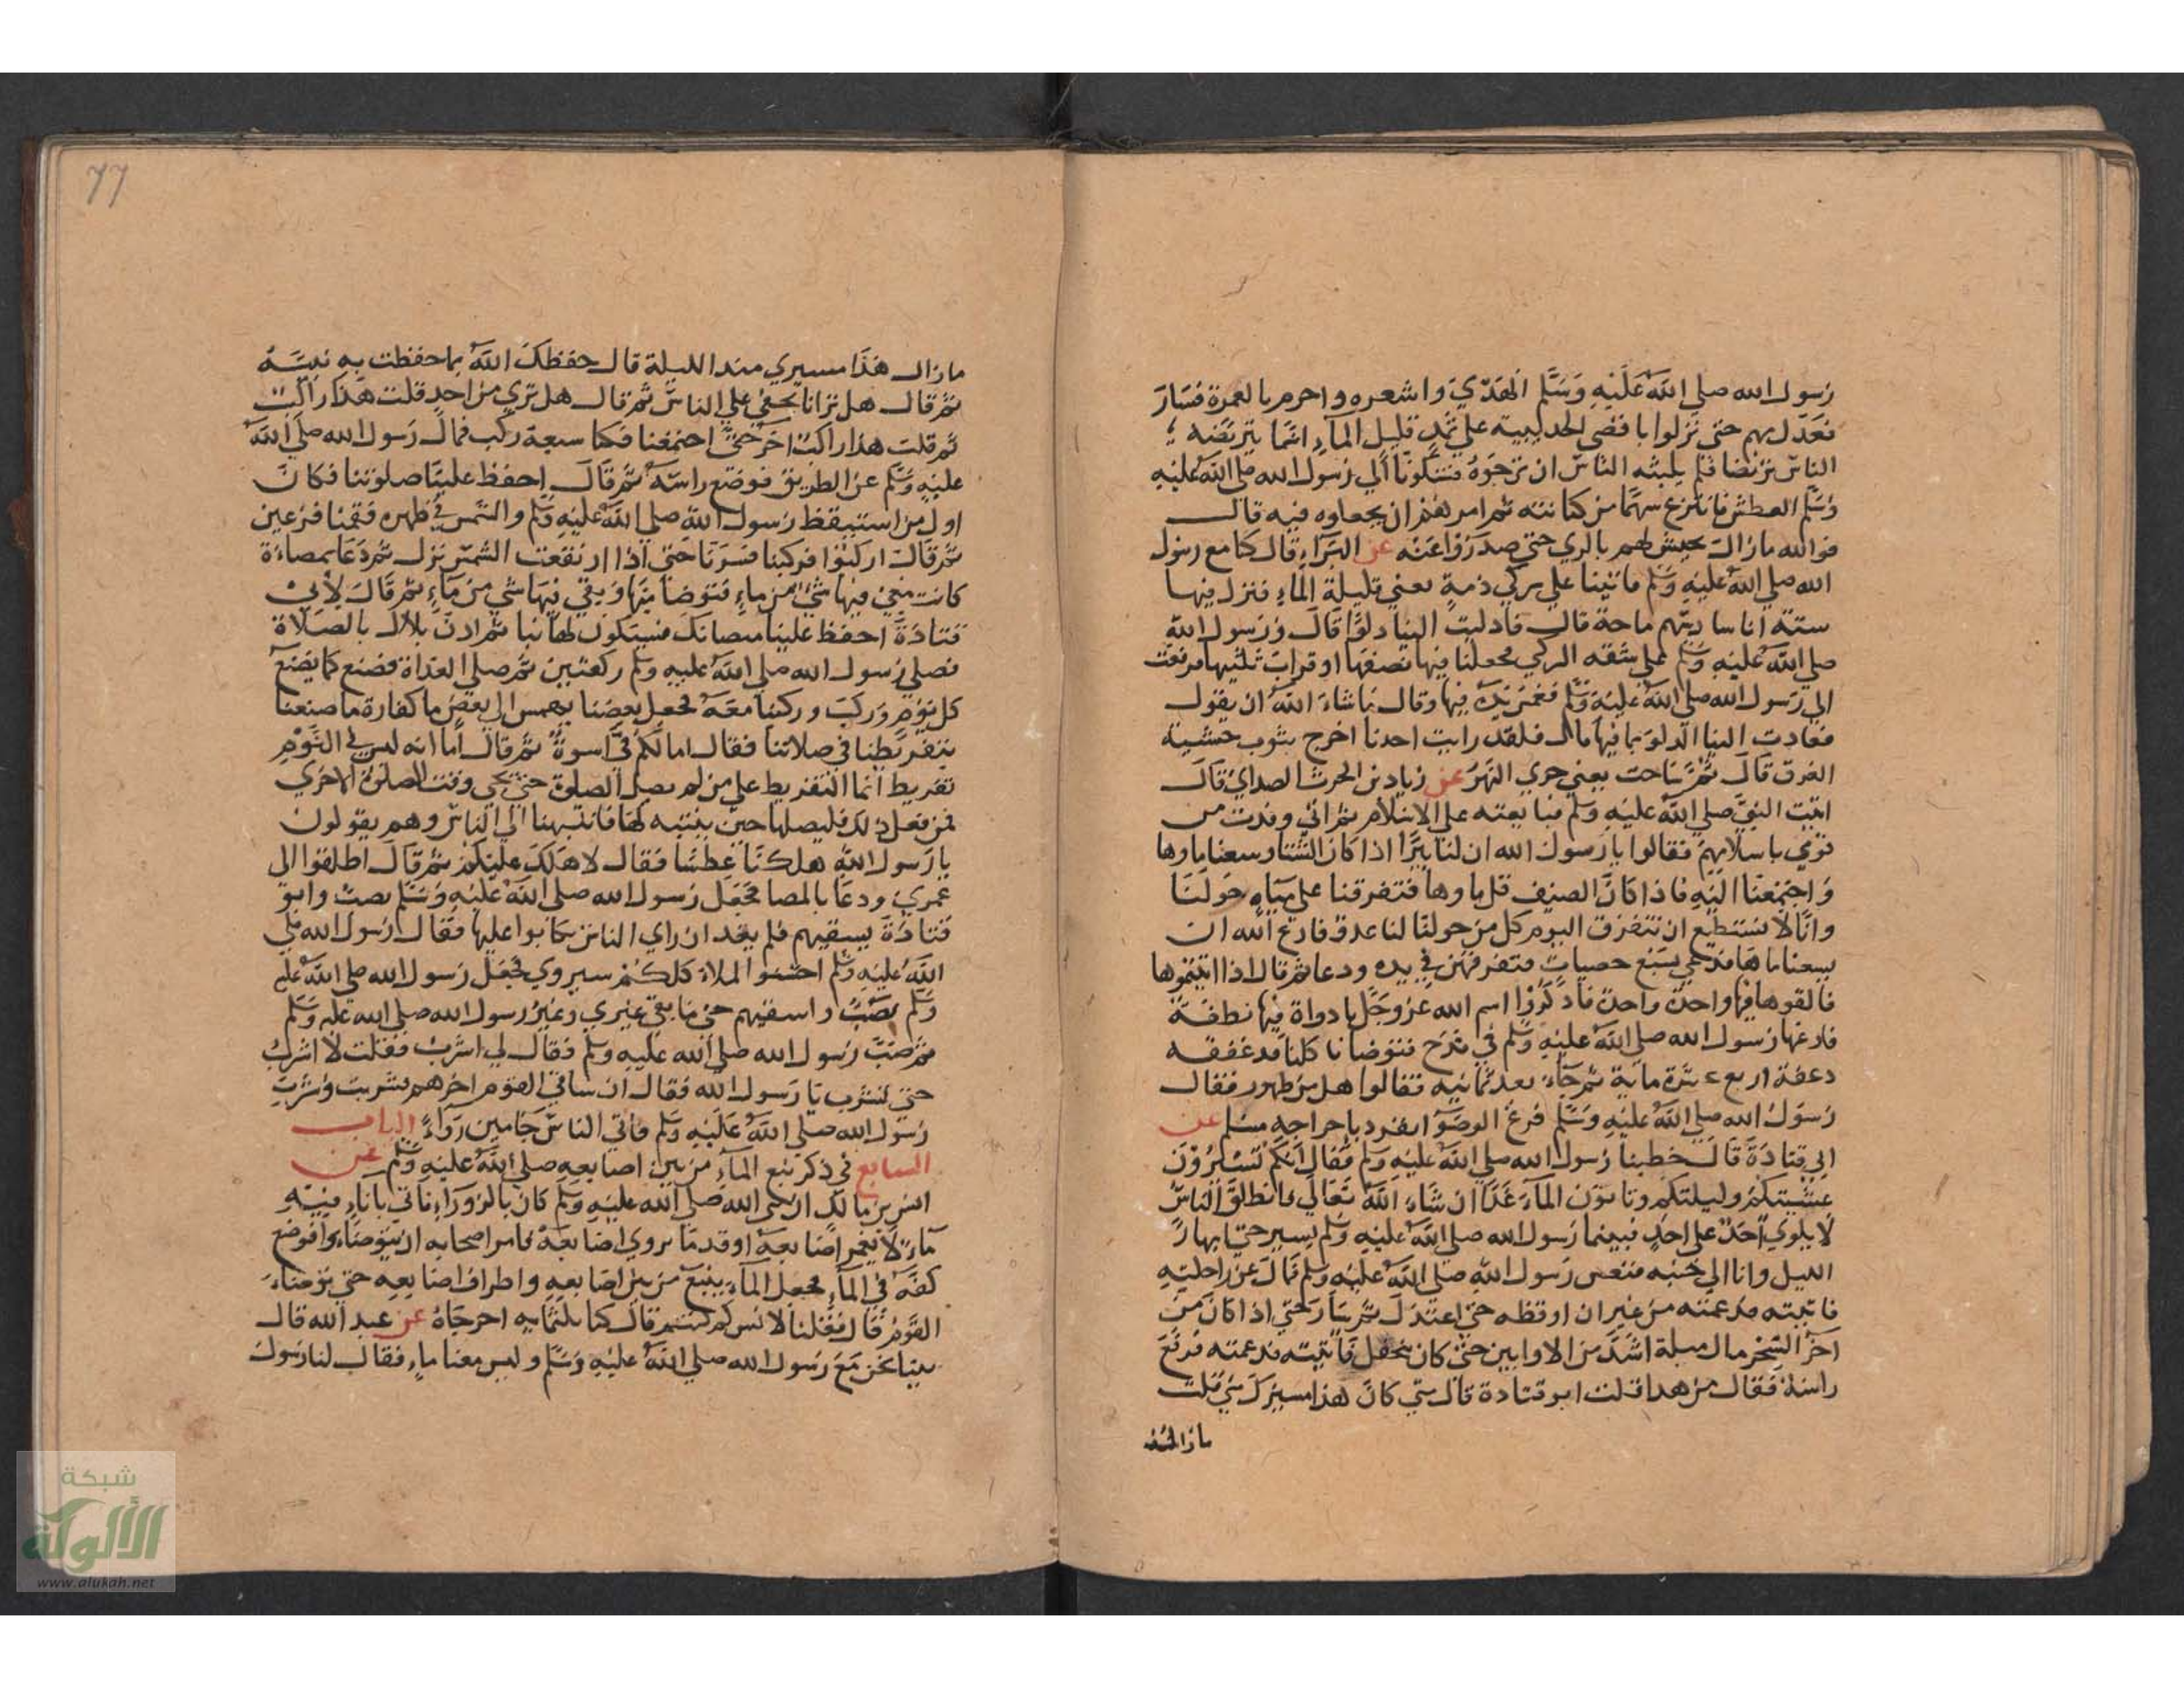 رسول الله صلى الله عليه وسلم الهدي واشعره واحرم بالعمرة فسار
فعدل بهم حتى نزلوا باقصى الحديبية على ثمد قليل الماء انما يتربضه
الناس تربضا فلم يلبثه الناس ان نزحوه فشكونا الي رسول الله صلى الله عليه
وسلم العطش فانتزع سهما من كنانته ثم امرهم ان يجعلوه فيه قال
فوالله مازال يجيش لهم بالري حتى صدروا عنه عن البراء قال كنا مع رسول
الله صلى الله عليه وسلم فاتينا علي ركي ذمة يعني قليلة الماء فنزل فيها
ستة انا سادسهم ماحة قال فادليت الينا دلوا قال ورسول الله
صلي الله عليه وسلم على شفه الركي فجعلنا فيها نصفها او قراب ثلثيها فرفعت
الي رسول الله صلي الله عليه وسلم فغمس يده فيها وقال ما شاء الله ان يقول
فعادت الينا الدلو بما فيها قال فلقد رايت احدنا اخرج بثوب خشية
الغرق قال ثم ساحت يعني جري النهر عن زياد بن الحرث الصداي قال
اتيت النبي صلي الله عليه وسلم فبايعته علي الاسلام ثم اتي وفدت من
قومي باسلامهم فقالوا يا رسول الله ان لنا بئرا اذا كان الشتا وسعنا ماوها
واجتمعنا اليه فاذا كان الصيف قل ماوها فتفرقنا على مياه حولنا
وانا لا نستطيع ان نتفرق اليوم كل من حولنا لنا عدو فادع الله ان
يسعنا ماها فدعي بسبع حصيات ففرقهن في يده ودعا ثم قال اذا اتيتموها
فالقوها فيها واحدة واحدة فاذكروا اسم الله عز وجل باداوة فيها نطفة
فارغها رسول الله صلي الله عليه وسلم في قدح فتوضانا كلنا ندغفقه
دغفة اربع عشرة ماية ثم جاء بعد ثمانية فقالوا هل من طهور فقال
رسول الله صلي الله عليه وسلم فرغ الوضوء انفرد باخراجه مسلم عن
ابي قتادة قال خطبنا رسول الله صلي الله عليه وسلم فقال انكم تسيرون
عشيتكم وليلتكم وتاتون الماء غدا ان شاء الله تعالي فانطلق الناس
لا يلوي احد علي احد فبينما رسول الله صلي الله عليه وسلم يسير حتي ابهار
الليل وانا الي جنبه فنعس رسول الله صلي الله عليه وسلم فمال عن راحلته
فاتيته فدعمته من غير ان اوقظه حتي اعتدل ثم سار حتي اذا كان من
آخر السحر مال ميلة اشد من الاوليين حتي كان ينجفل فاتيته فدعمته فرفع
راسه فقال من هذا قلت ابو قتادة قال متي كان هذا مسيرك مني قلت
ما زال هذا
77
مازال هذا مسيري منذ الليلة قال حفظك الله بما حفظت به نبيه
ثم قال هل ترانا نخفي علي الناس ثم قال هل تري من احد قلت هذا راكب
ثم قلت هذا راكب اخر حتي اجتمعنا فكنا سبعة ركب فمال رسول الله صلي الله
عليه وسلم عن الطريق فوضع راسه ثم قال احفظ علينا صلوتنا فكان
اول من استيقظ رسول الله صلي الله عليه وسلم والشمس في ظهره فقمنا فزعين
ثم قال اركبوا فركبنا فسرنا حتي اذا ارتفعت الشمس نزل ثم دعا بمضاءة
كانت معي فيها شيء من ماء فتوضا منها وبقي فيها شي من ماء ثم قال لابي
قتادة احفظ علينا ميضاتك فسيكون لها نبا ثم اذن بلال بالصلاة
فصلي رسول الله صلي الله عليه وسلم ركعتين ثم صلي الغداة فصنع كما يصنع
كل يوم وركب وركبنا معه فجعل بعضنا يهمس الي بعض ما كفارة ما صنعنا
بتفريطنا في صلاتنا فقال اما لكم فيّ اسوة ثم قال اما انه ليس في النوم
تفريط انما التفريط علي من لم يصل الصلوة حتي يجي وقت الصلوة الاخري
فمن فعل ذلك فليصلها حين ينتبه لها فانتهينا الي الناس وهم يقولون
يا رسول الله هلكنا عطشا فقال لا هلك عليكم ثم قال اطلقوا الي
غمري ودعا بالمضا فجعل رسول الله صلي الله عليه وسلم يصب وابو
قتادة يسقيهم فلم يعد ان راي الناس تكابوا عليها فقال رسول الله صلي
الله عليه وسلم احسنوا الملاء كلكم سيروي فجعل رسول الله صلي الله عليه
وسلم يصب واسقيهم حتي ما بقي غيري وغير رسول الله صلي الله عليه وسلم
ثم صب رسول الله صلي الله عليه وسلم فقال لي اشرب فقلت لا اشرب
حتي تشرب يا رسول الله فقال ان ساقي القوم اخرهم فشربت وشرب
رسول الله صلي الله عليه وسلم فاتي الناس جامين رواء الباب
السابع في ذكر نبع الماء من بين اصابعه صلي الله عليه وسلم عن
انس بن مالك ان نبي الله صلي الله عليه وسلم كان بالزوراء فاتي باناء فيه
ماء لا يغمر اصابعه او قدر ما يواري اصابعه فامر اصحابه ان يتوضاوا فوضع
كفه في الماء فجعل الماء ينبع من بين اصابعه واطراف اصابعه حتي توضاء
القوم قال فقلنا لانس كم كنتم قال كنا ثلثماية اخرجاه عن عبد الله قال
بينا نحن مع رسول الله صلي الله عليه وسلم وليس معنا ماء فقال لنا رسول
شبكة
الألوكة
www.alukah.net